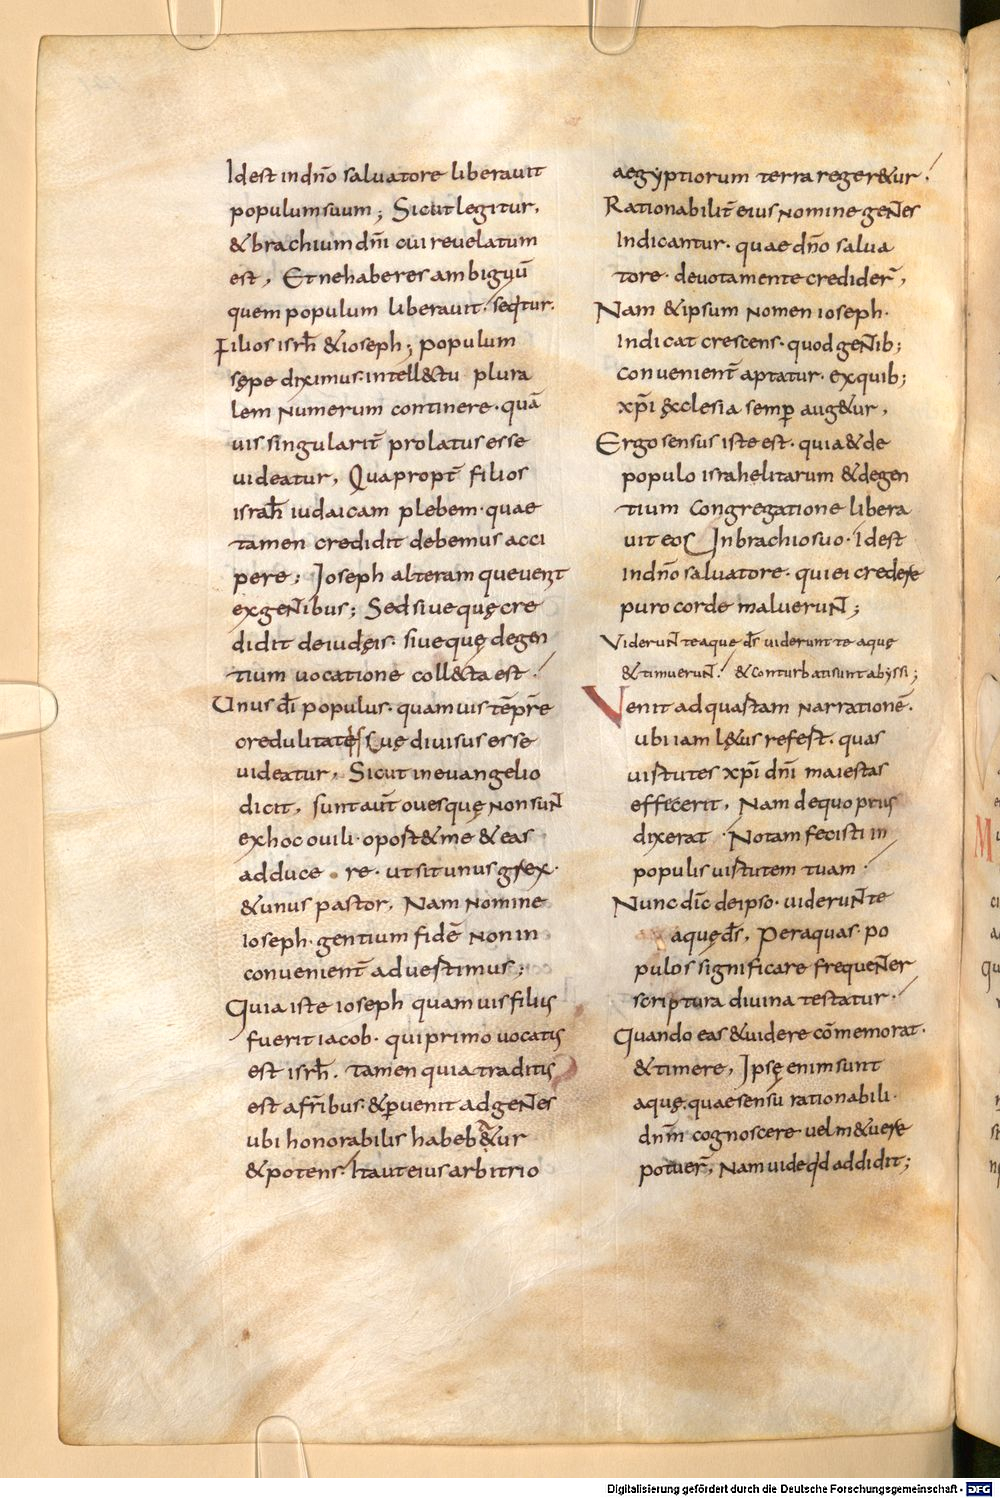 Idest indn̄o saluatore liberauit
populumsuum; Sicut legitur,
&brachium dn̄i cui reuelatum
est, Etnehaberes ambiguū
quem populum liberauit. seq̄tur.
Filios isrh̄ &ioseph; populum
sępe diximus. intell&tu plura
lem numerum continere. quā
uis singularit̄ prolatus esse
uideatur, Quapropt̄ filios
israh̄ iudaicam plebem. quae
tamen credidit debemus acci
pere; Ioseph alteram queuenit
exgentibus; Sed siue quę cre
didit deiudęis. siue quę degen
tium uocatione coll&ta est.
Unus dī populus. quamuis tēpr̄e
credulitatęs suę diuisus esse
uideatur, Sicut ineuangelio
dicit, sunt aūt ouesquę non sunt
exhoc ouili. oport& me &eas
adduce re. ut sit unus grex.
&unus pastor, Nam nomine
ioseph. gentium fidē non in
conuenient̄ aduertimus;
Quia iste ioseph quamuis filius
fuerit iacob. qui primo uocatus
est isrh̄. tamen quia traditus
est afr̄ibus. &puenit adgentes
ubi honorabilis habeb&ur
&potens. Ita ut eius arbitrio
aegyptiorum terra reger&ur.
Rationabilit̄ eius nomine gentes
Indicantur. quae dn̄o salua
tore. deuotamente credider̄,
Nam &ipsum nomen ioseph.
Indicat crescens. quod gentib;
conuenient̄ aptatur. exquib;
xp̄i ęcclesia semp aug&ur,
Ergo sensus iste est. quia &de
populo israhelitarum &degen
tium congregatione libera
uit eos Inbrachio suo. Idest
Indn̄o saluatore. qui ei credere
puro corde maluerunt;
Viderunt te aque ds̄ uiderunt te aquę
&timuerunt. &conturbati sunt abyssi;
Venit ad quastam narrationē.
ubi iam lętus refert. quas
uirtutes xp̄i dn̄i maiestas
effecerit, Nam de quo prius
dixerat Notam fecisti in
populis uirtutem tuam.
Nunc dīc deipso. uiderunt te
aquę ds̄, Per aquas. po
pulos significare frequenter
scriptura diuina testatur.
Quando eas &uidere cōmemorat.
&timere, Ipsę enim sunt
aquę. quae sensu rationabili.
dnm̄ cognoscere uel m&uere
potuer̄, Nam uide qd addidit;
Digitalisierung gefördert durch die Deutsche Forschungsgemeinschaft - DFG